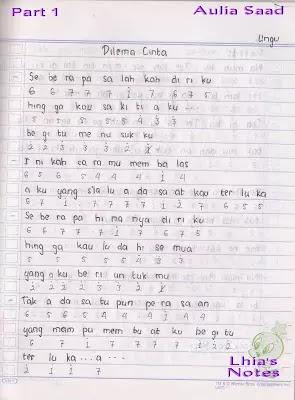 Part 1
Aulia Saad
Ungu
Dilema Cinta
- Se be ra pa sa lah kah di ri ku
6 6 7 7 7 i 7 6 7
hing ga kau sa ki ti a ku
5 5 5 5 5 4 3 7
be gi tu me nu suk ku
2 2 3 3 3 2 1
- I ni kah ca ra mu mem ba las
6 5 6 5 4 4 4 i 4
a ku yang s'la lu a da sa at kau ter lu ka
6 7 1 7 7 7 1 2 7 6 5 5
- Se be ra pa hi na nya di ri ku
6 6 7 7 7 1 7 6 7 5
hing ga kau lu da hi se mua
5 5 5 5 5 4 3 3
yang ku be ri un tuk mu
1 2 2 2 3 3 2 1
- Tak a da sa tu pun pe ra sa an
6 5 6 5 4 4 4 i 4 4
yang mam pu mem bu at ku be gi tu
6 7 i 7 7 7 7 1 2 2
ter lu ka ... a ...
2 1 1 7
Lhia's
Notes